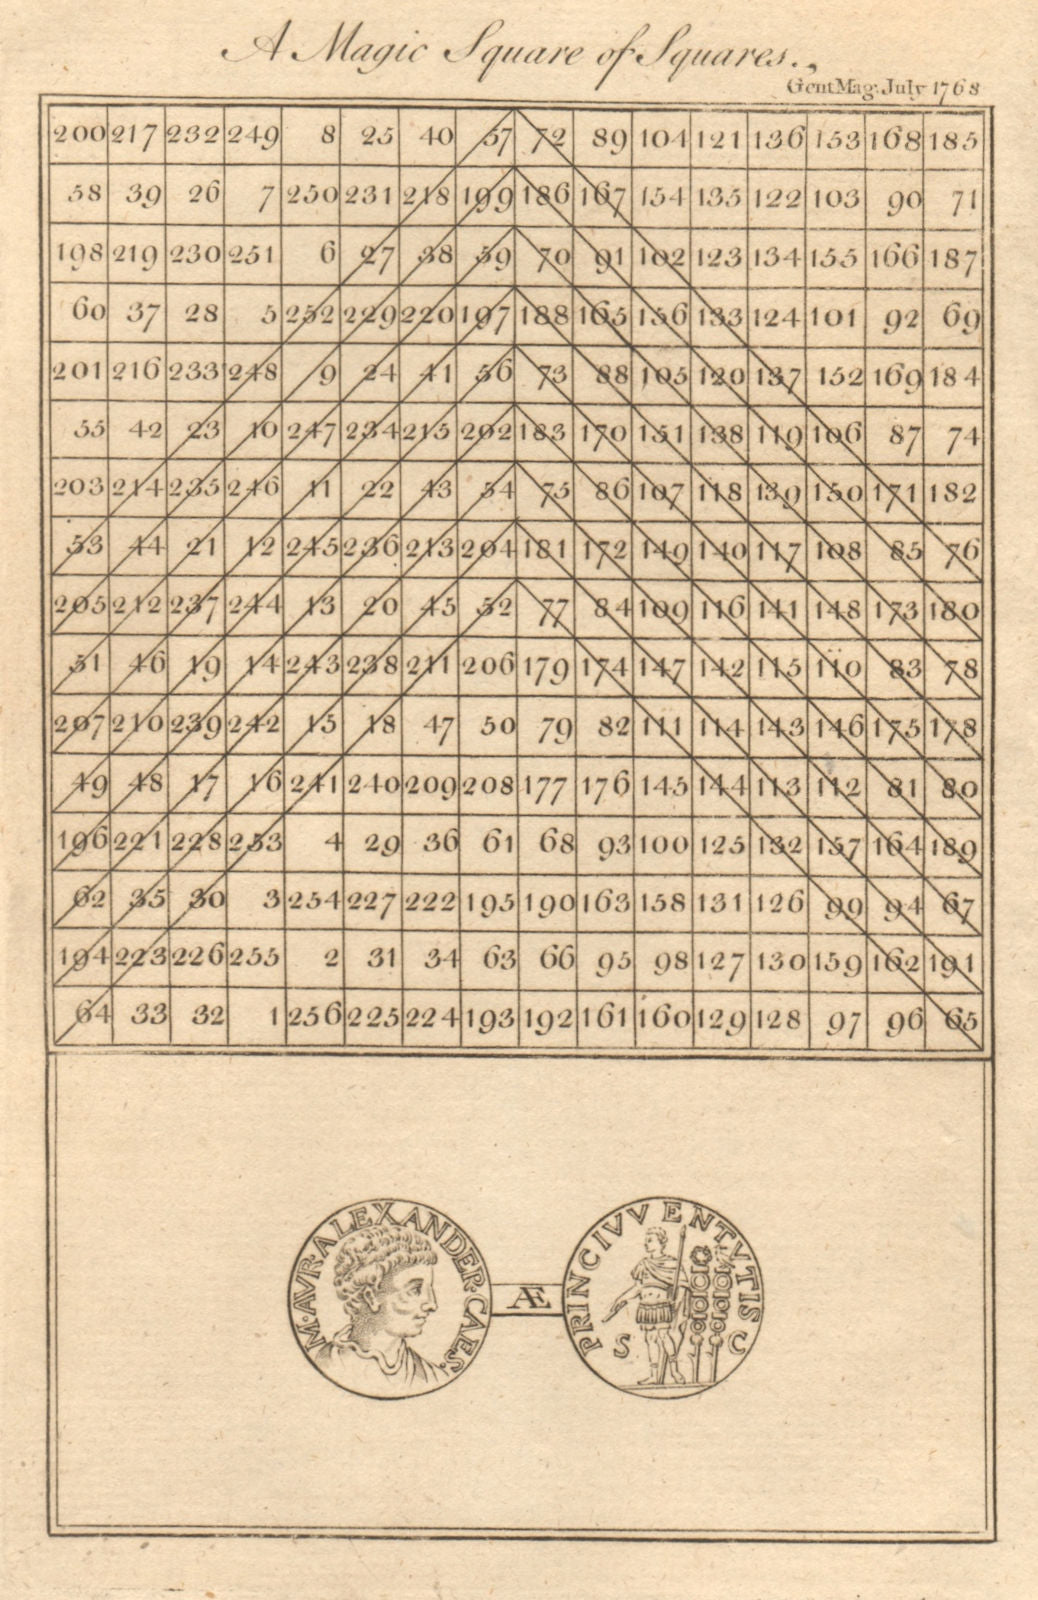 A Magic Square of Squares.
Gent Mag. July 1768
200 217 232 249 8 25 40 57 72 89 104 121 136 153 168 185
58 39 26 7 250 231 218 199 186 167 154 135 122 103 90 71
198 219 230 251 6 27 38 59 70 91 102 123 134 155 166 187
60 37 28 5 252 229 220 197 188 165 156 133 124 101 92 69
201 216 233 248 9 24 41 56 73 88 105 120 137 152 169 184
55 42 23 10 247 234 215 202 183 170 151 138 119 106 87 74
203 214 235 246 11 22 43 54 75 86 107 118 139 150 171 182
53 44 21 12 245 236 213 204 181 172 149 140 117 108 85 76
205 212 237 244 13 20 45 52 77 84 109 116 141 148 173 180
51 46 19 14 243 238 211 206 179 174 147 142 115 110 83 78
207 210 239 242 15 18 47 50 79 82 111 114 143 146 175 178
49 48 17 16 241 240 209 208 177 176 145 144 113 112 81 80
196 221 228 253 4 29 36 61 68 93 100 125 132 157 164 189
62 35 30 3 254 227 222 195 190 163 158 131 126 99 94 67
194 223 226 255 2 31 34 63 66 95 98 127 130 159 162 191
64 33 32 1 256 225 224 193 192 161 160 129 128 97 96 65
M·AVR ALEXANDER·CAES·
Æ
PRINCIVVENTVTIS
S C